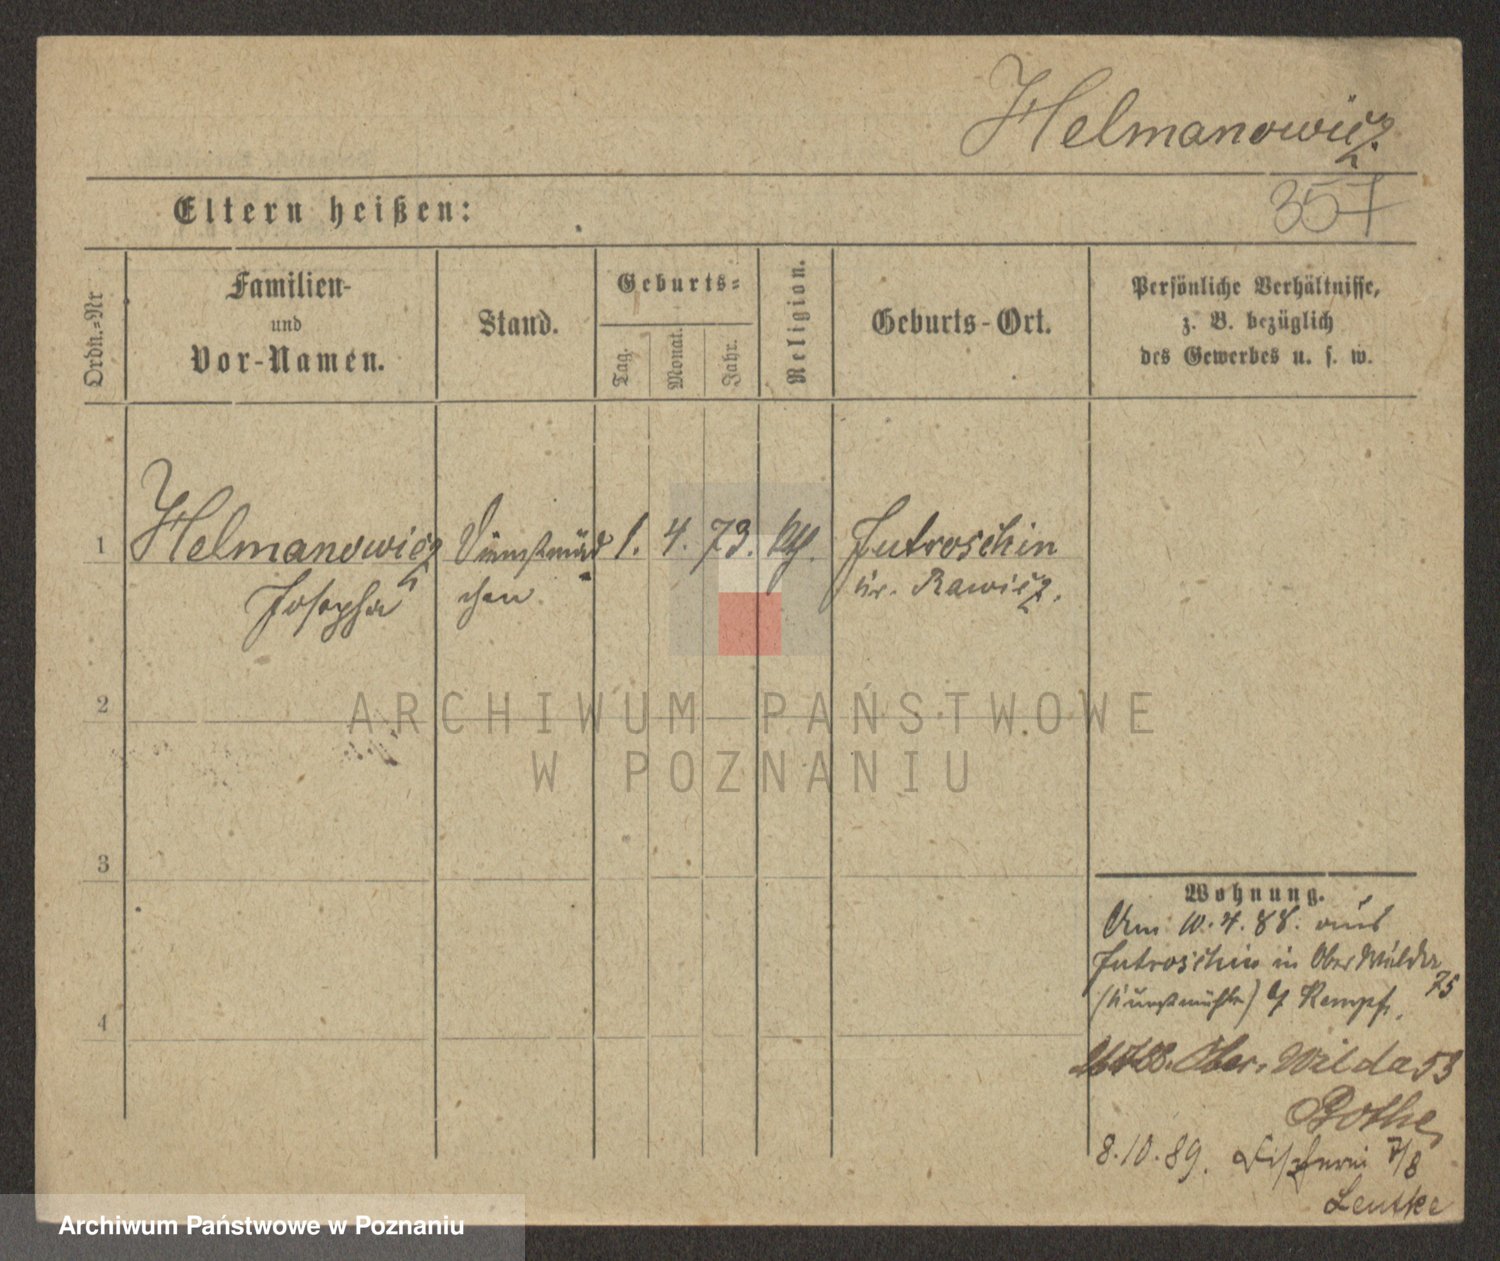 Helmanowicz.
357
Eltern heißen:
Ordn.=Nr
Familien-
und
Vor-Namen.
Stand.
Geburts=
Tag.
Monat.
Jahr.
Religion.
Geburts-Ort.
Persönliche Verhältnisse,
z. B. bezüglich
des Gewerbes u. s. w.
1
Helmanowicz
Josepha
Dienstmäd
chen
1. 4. 73.
Jutroschin
Kr. Rawicz.
2
3
4
Wohnung.
Am 10.4.88. aus
Jutroschin in Ober Wilda
75
(Kunstmühle) Kempf.
Ober. Wilda 53
Bothe
8.10.89. Fischerei 7/8
Leuske
ARCHIWUM PAŃSTWOWE
W POZNANIU
Archiwum Państwowe w Poznaniu